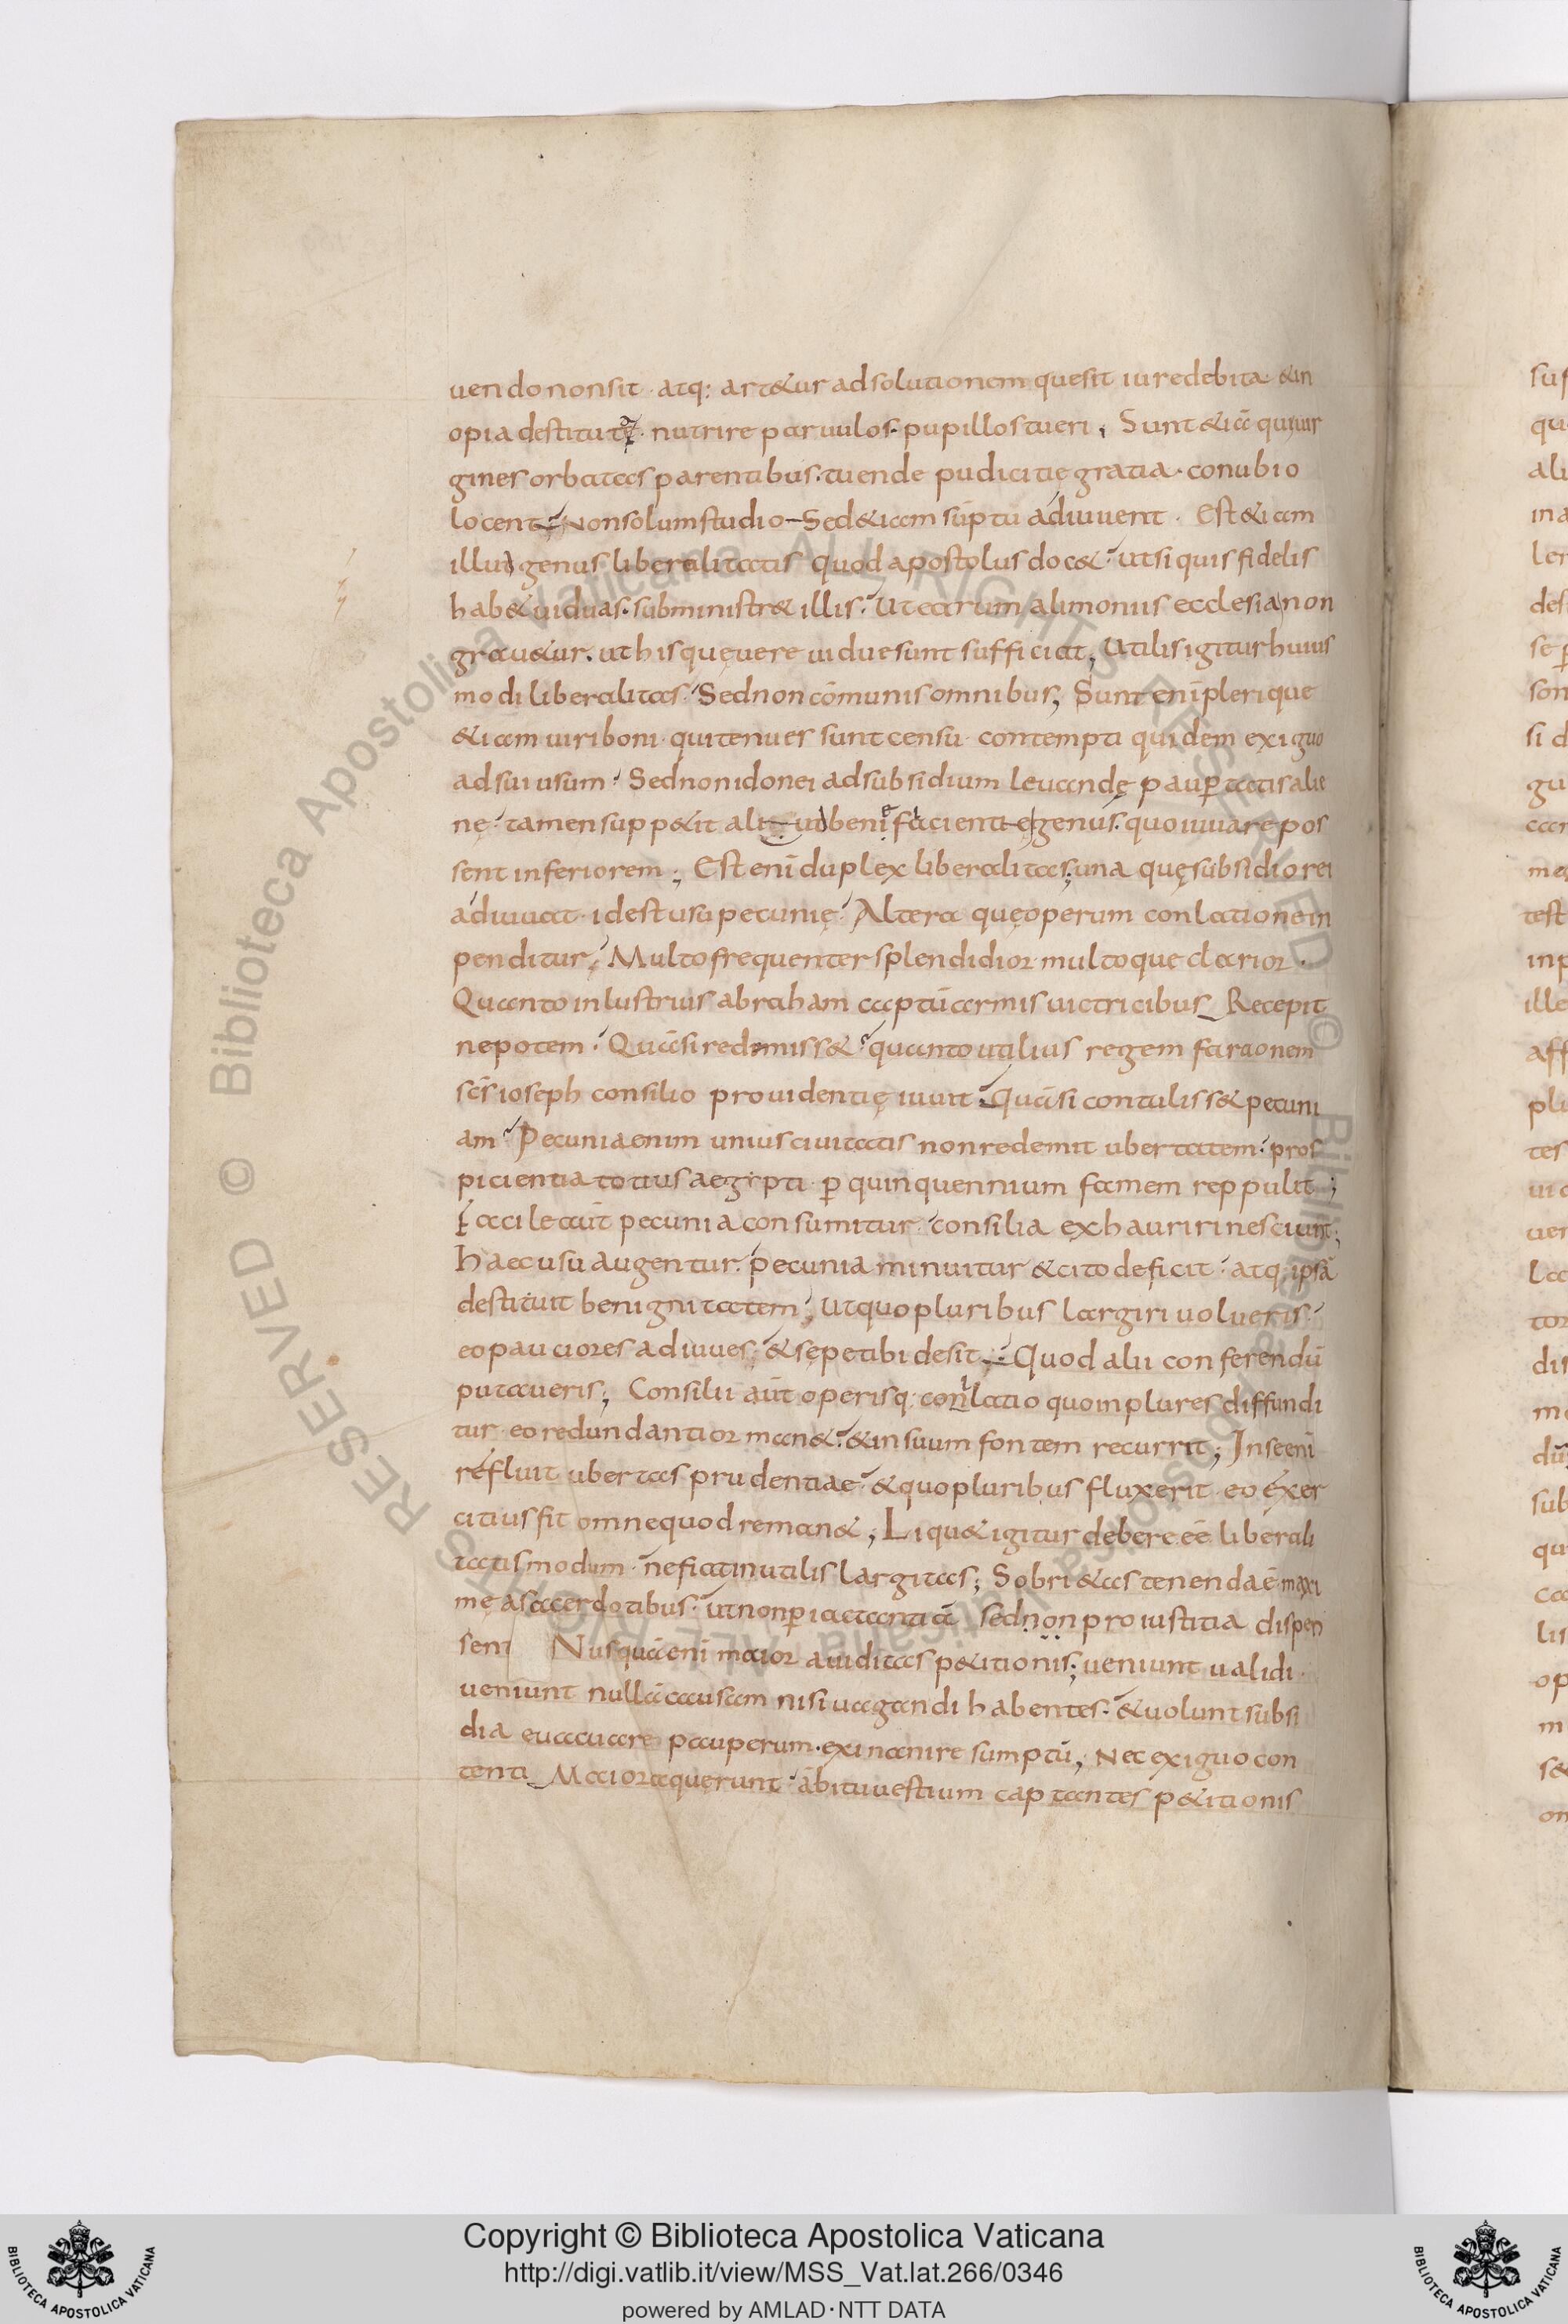 uendo non sit · atq: artetur ad solutionem que sit iure debita · & in
opia destitutę · nutrire paruulos · pupillos tueri ; Sunt & iā qui uir
gines orbatas parentibus · tuende pudicitię gratia · conubio
locent ; Non solum studio Sed & iam sūptu adiuuent · Est & iam
illud genus liberalitatis quod apostolus doc& · ut si quis fidelis
hab& uiduas · subministr& illis · Ut earum alimoniis ecclesia non
grau&ur · ut his quę uere uidue sunt sufficiat ; Utilis igitur huius
modi liberalitas · Sed non cōmunis omnibus ; Sunt enī plerique
& iam uiri boni · qui tenues sunt censu · contempti quidem exiguo
ad sui usum · Sed non idonei ad subsidium leuandę paup̄tatis alie
nę · tamen supp&it aliut benefacienti genus · quo iuuare pos
sent inferiorem ; Est enī duplex liberalitas ; una quę subsidio rei
adiuuat · id est usu pecunię · Altera quę operum conlatione in
penditur ; Multo frequenter splendidior multoque clarior ·
Quanto inlustrius abraham captū armis uictricibus Recepit
nepotem · Quā si redemiss& · quanto utilius regem faraonem
scs̄ ioseph consilio prouidentię iuuit · Quā si contuliss& pecuni
am · Pecunia enim unius ciuitatis non redemit ubertatem · pros
picientia totius aegipti · p̄ quinquennium famem reppulit ;
Facile aūt pecunia consumitur · consilia exhauriri nesciunt ;
haec usu augentur · pecunia minuitur & cito deficit · atq; ipsā
destituit benignitatem ; Ut quo pluribus largiri uolueris ·
eo pauciores adiuues · & sępe tibi desit ; Quod alii conferendū
putaueris ; Consilii aūt operisq; conlatio quo in plures diffundi
tur · eo redundantior man& · & in suum fontem recurrit ; In se enī
refluit ubertas prudentiae · & quo pluribus fluxerit · eo exer
citius fit omne quod reman& ; Liqu& igitur debere eē liberali
tatis modum · ne fiat inutilis largitas ; Sobri&as tenenda ē maxi
mę a sacerdotibus · ut non p̄ iactantiā sed non pro iustitia dispen
sent Nusquā enī maior auiditas p&itionis ; ueniunt ualidi ·
ueniunt nullā causam nisi uagandi habentes · & uolunt subsi
dia euacuare pauperum · exinanire sumptū ; Nec exiguo con
tenti Maiora quęrunt · abitu uestium captantes p&itionis
Copyright © Biblioteca Apostolica Vaticana
http://digi.vatlib.it/view/MSS_Vat.lat.266/0346
powered by AMLAD·NTT DATA